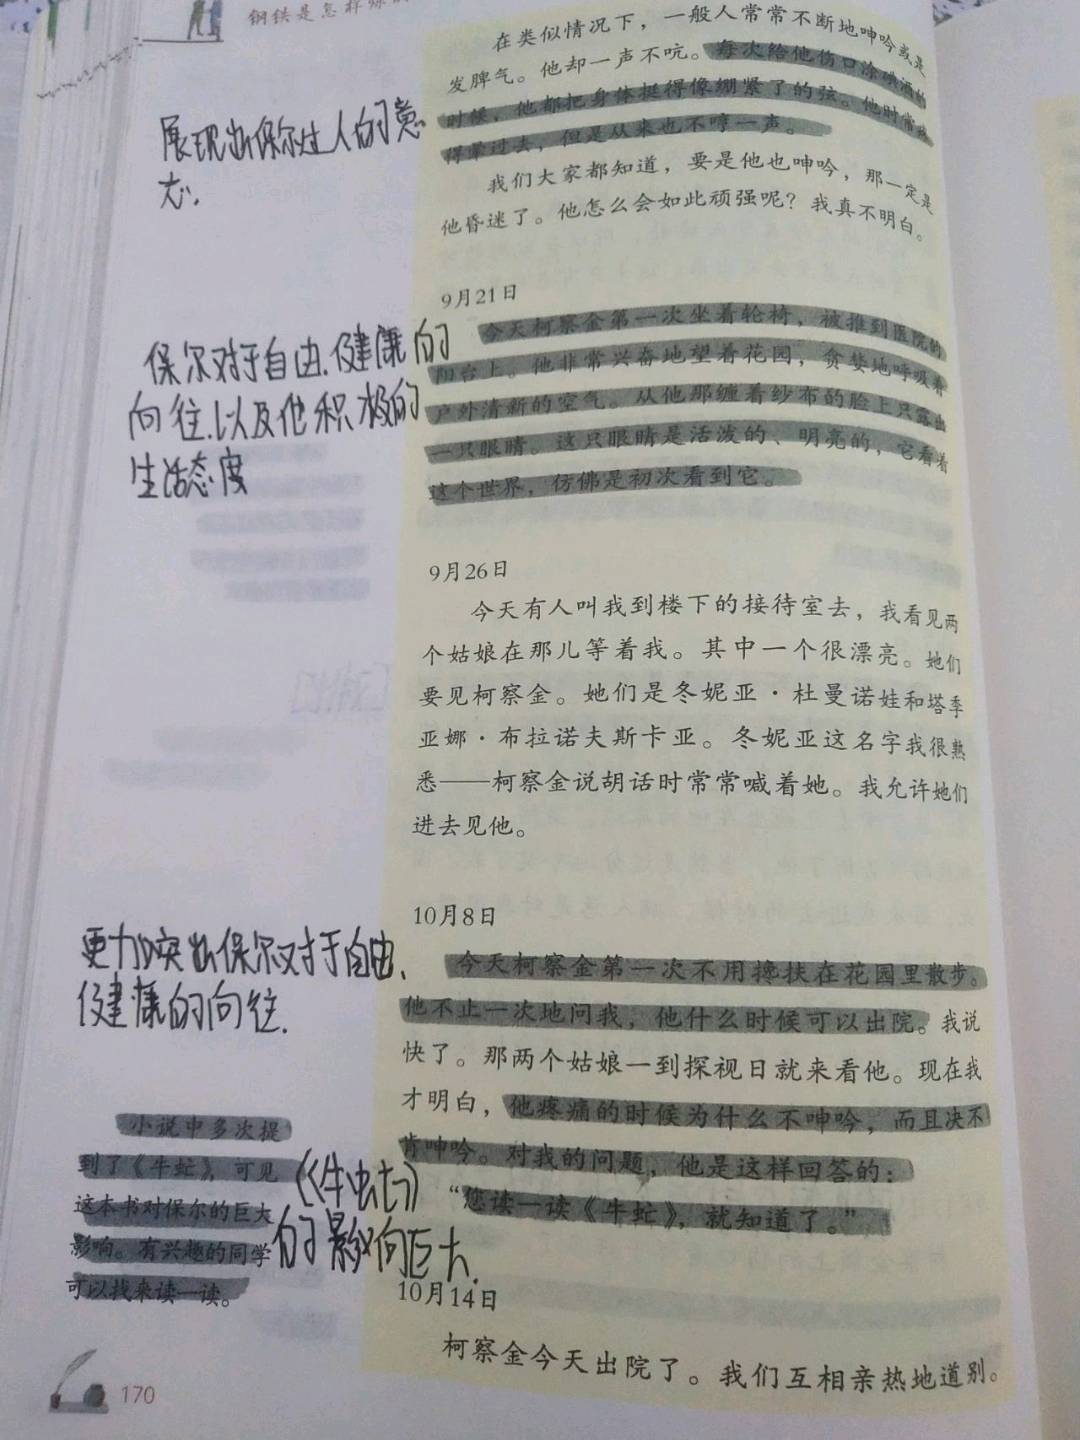 钢铁是怎样炼的
在类似情况下，一般人常常不断地呻吟或是
发脾气。他却一声不吭。每次给他伤口涂碘酒的
时候，他都把身体挺得像绷紧了的弦。他时常痛
得晕过去，但是从来也不哼一声。
我们大家都知道，要是他也呻吟，那一定是
他昏迷了。他怎么会如此顽强呢？我真不明白。
展现出保尔过人的意
志.
9月21日
今天柯察金第一次坐着轮椅，被推到医院的
阳台上。他非常兴奋地望着花园，贪婪地呼吸着
户外清新的空气。从他那缠着纱布的脸上只露出
一只眼睛。这只眼睛是活泼的、明亮的，它看着
这个世界，仿佛是初次看到它。
保尔对于自由.健康的
向往.以及他积极的
生活态度
9月26日
今天有人叫我到楼下的接待室去，我看见两
个姑娘在那儿等着我。其中一个很漂亮。她们
要见柯察金。她们是冬妮亚·杜曼诺娃和塔季
亚娜·布拉诺夫斯卡亚。冬妮亚这名字我很熟
悉——柯察金说胡话时常常喊着她。我允许她们
进去见他。
10月8日
今天柯察金第一次不用搀扶在花园里散步。
他不止一次地问我，他什么时候可以出院。我说
快了。那两个姑娘一到探视日就来看他。现在我
才明白，他疼痛的时候为什么不呻吟，而且决不
肯呻吟。对我的问题，他是这样回答的：
“您读一读《牛虻》，就知道了。”
更加突出保尔对于自由.
健康的向往.
小说中多次提
到了《牛虻》，可见
这本书对保尔的巨大
影响。有兴趣的同学
可以找来读一读。
《牛虻》
的影响巨大.
10月14日
柯察金今天出院了。我们互相亲热地道别。
170